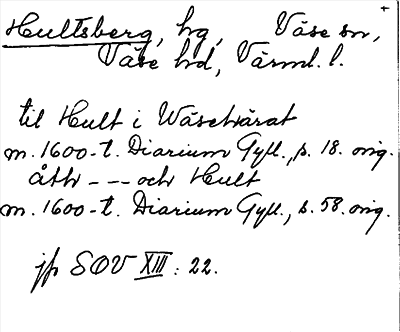 Hultsberg, hg, Väse sn,
Väse hd, Värml. l.
til Hult i Wäsehärat
m. 1600-t. Diarium Gyll., s. 18. orig.
åth --- och Hult
m. 1600-t. Diarium Gyll., s. 58. orig.
jfr SOV XIII: 22.